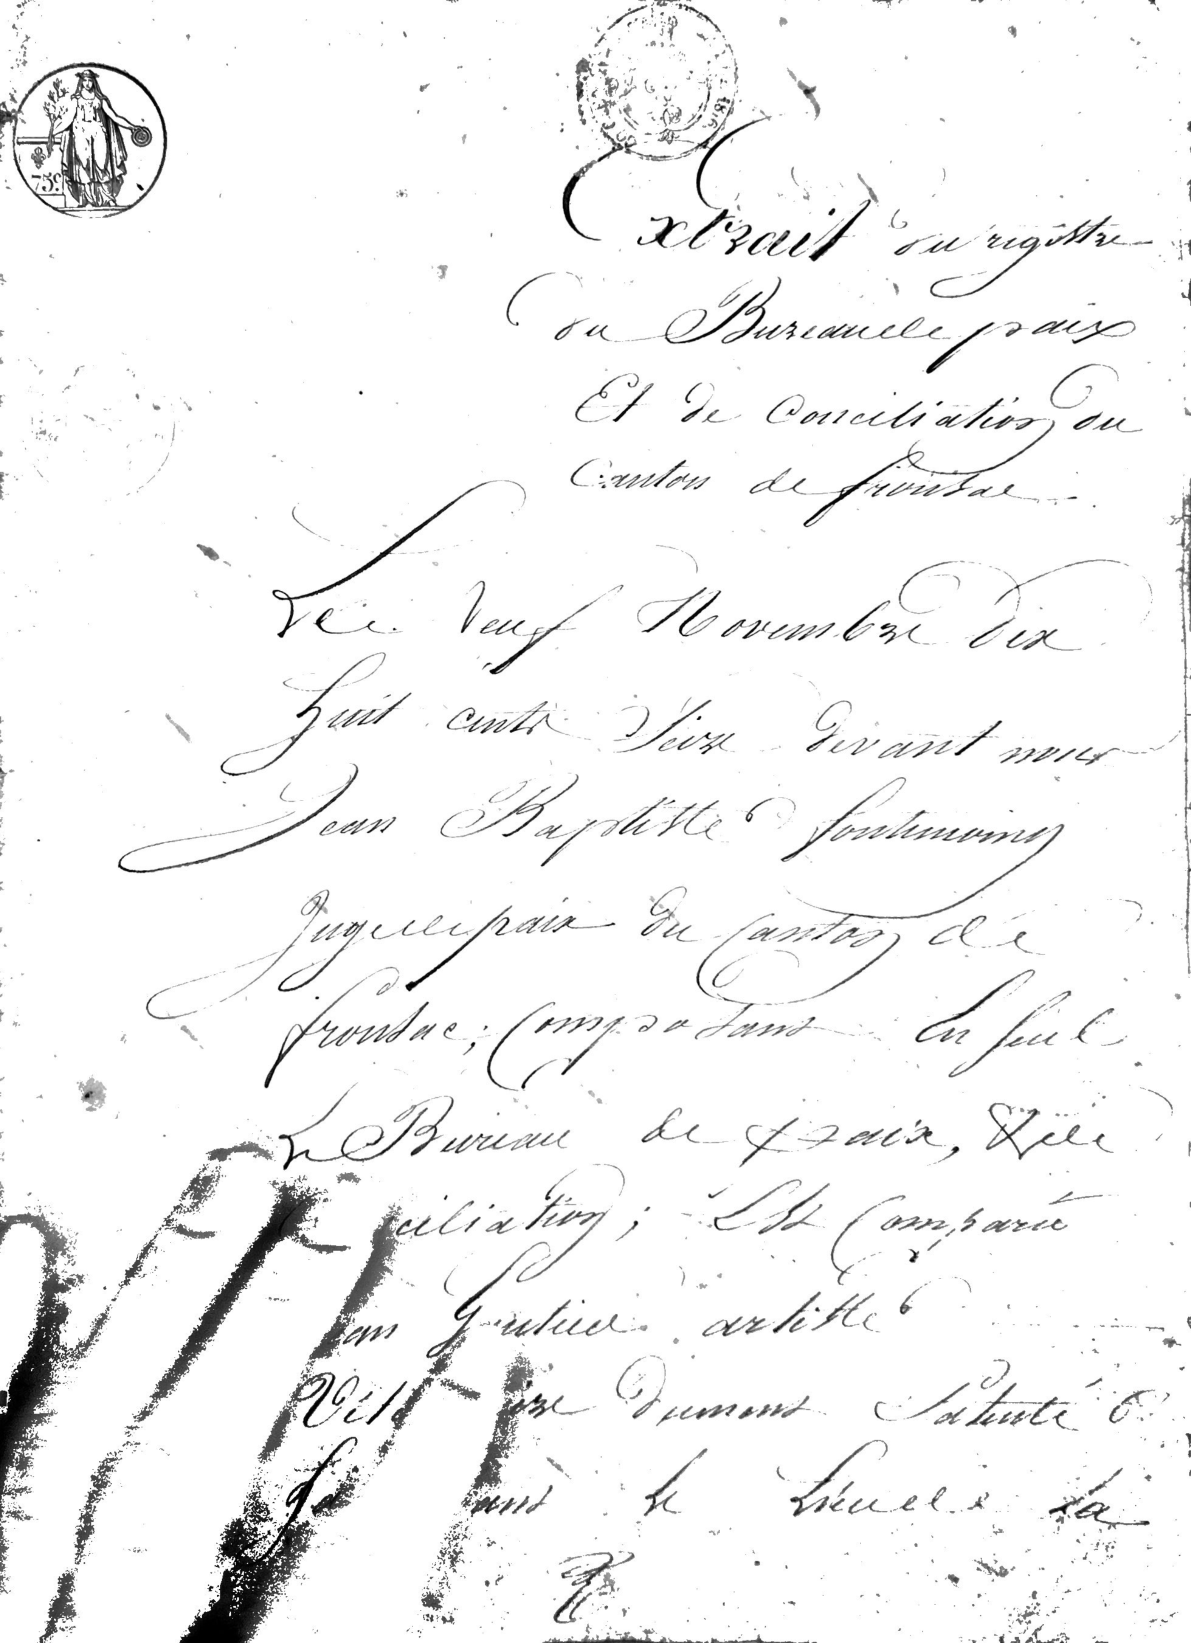 75c.
1816
Extrait du registre
du Bureau de paix
Et de Conciliation du
Canton de fronsac
Le neuf Novembre dix
huit cents seize devant nous
Jean Baptiste fontemoing
Juge de paix du Canton de
fronsac, Composant En seul
Le Bureau de paix, & de
ciliation; Est Comparu
an artiste
dument Patenté
Le Lieu de la